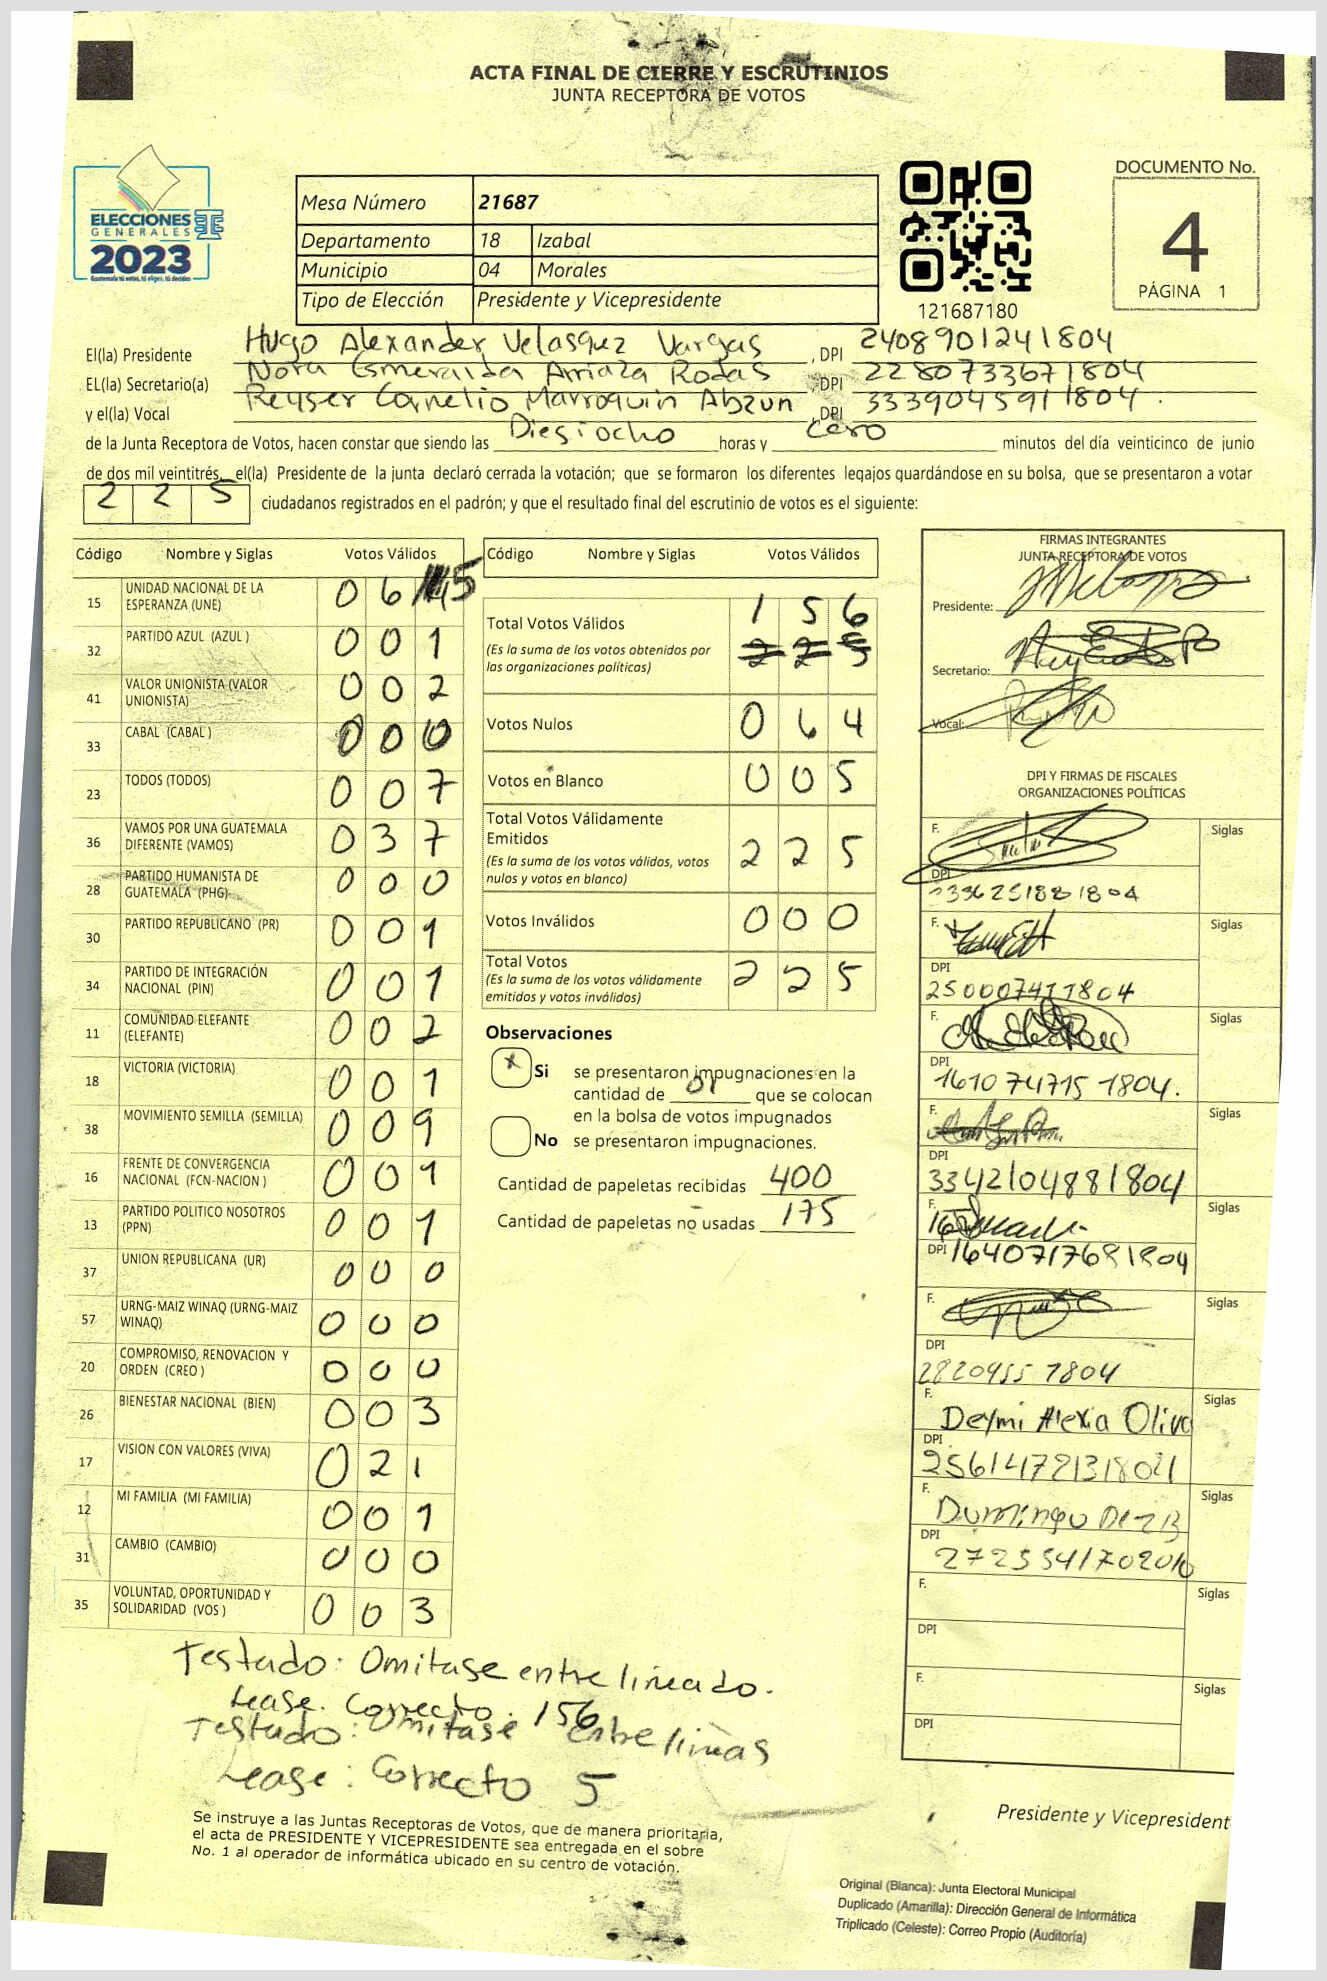 ACTA FINAL DE CIERRE Y ESCRUTINIOS
JUNTA RECEPTORA DE VOTOS
ELECCIONES
GENERALES
2023
Guatemala tú votas, tú eliges, tú decides
Mesa Número 21687
Departamento 18 Izabal
Municipio 04 Morales
Tipo de Elección Presidente y Vicepresidente
121687180
DOCUMENTO No.
4
PÁGINA 1
El(la) Presidente Hugo Alexander Velasquez Vargas , DPI 2408901241804
EL(la) Secretario(a) Nora Esmeralda Arriaza Rodas , DPI 2280733671804
y el(la) Vocal Reyser Cornelio Marroquin Abzun , DPI 3339045911804.
de la Junta Receptora de Votos, hacen constar que siendo las Diesiocho horas y Cero minutos del día veinticinco de junio
de dos mil veintitrés, el(la) Presidente de la junta declaró cerrada la votación; que se formaron los diferentes legajos guardándose en su bolsa, que se presentaron a votar
2 2 5 ciudadanos registrados en el padrón; y que el resultado final del escrutinio de votos es el siguiente:
Código Nombre y Siglas Votos Válidos
15 UNIDAD NACIONAL DE LA ESPERANZA (UNE) 0 6 5
32 PARTIDO AZUL (AZUL ) 0 0 1
41 VALOR UNIONISTA (VALOR UNIONISTA) 0 0 2
33 CABAL (CABAL ) 0 0 0
23 TODOS (TODOS) 0 0 7
36 VAMOS POR UNA GUATEMALA DIFERENTE (VAMOS) 0 3 7
28 PARTIDO HUMANISTA DE GUATEMALA (PHG) 0 0 0
30 PARTIDO REPUBLICANO (PR) 0 0 1
34 PARTIDO DE INTEGRACIÓN NACIONAL (PIN) 0 0 1
11 COMUNIDAD ELEFANTE (ELEFANTE) 0 0 2
18 VICTORIA (VICTORIA) 0 0 1
38 MOVIMIENTO SEMILLA (SEMILLA) 0 0 9
16 FRENTE DE CONVERGENCIA NACIONAL (FCN-NACION ) 0 0 1
13 PARTIDO POLITICO NOSOTROS (PPN) 0 0 1
37 UNION REPUBLICANA (UR) 0 0 0
57 URNG-MAIZ WINAQ (URNG-MAIZ WINAQ) 0 0 0
20 COMPROMISO, RENOVACION Y ORDEN (CREO ) 0 0 0
26 BIENESTAR NACIONAL (BIEN) 0 0 3
17 VISION CON VALORES (VIVA) 0 2 1
12 MI FAMILIA (MI FAMILIA) 0 0 1
31 CAMBIO (CAMBIO) 0 0 0
35 VOLUNTAD, OPORTUNIDAD Y SOLIDARIDAD (VOS ) 0 0 3
Código Nombre y Siglas Votos Válidos
Total Votos Válidos 1 5 6
(Es la suma de los votos obtenidos por las organizaciones políticas) 2 2 5
Votos Nulos 0 6 4
Votos en Blanco 0 0 5
Total Votos Válidamente Emitidos 2 2 5
(Es la suma de los votos válidos, votos nulos y votos en blanco)
Votos Inválidos 0 0 0
Total Votos 2 2 5
(Es la suma de los votos válidamente emitidos y votos inválidos)
Observaciones
x Si se presentaron impugnaciones en la
cantidad de 01 que se colocan
en la bolsa de votos impugnados
No se presentaron impugnaciones.
Cantidad de papeletas recibidas 400
Cantidad de papeletas no usadas 175
FIRMAS INTEGRANTES
JUNTA RECEPTORA DE VOTOS
Presidente:
Secretario:
Vocal:
DPI Y FIRMAS DE FISCALES
ORGANIZACIONES POLÍTICAS
F. Siglas
DPI
F. Siglas
DPI
250007411804
F. Siglas
DPI
1610747151804.
F. Siglas
DPI
3342104881804
F. Siglas
DPI 1640717681804
F. Siglas
DPI
F. Deymi Alexia Oliva Siglas
DPI
F. Domingo Siglas
DPI
F. Siglas
DPI
F. Siglas
DPI
Testado: Omitase entre lineado.
Lease. Correcto. 156
Testado: Omitase entre lineas
Lease: Correcto 5
Se instruye a las Juntas Receptoras de Votos, que de manera prioritaria,
el acta de PRESIDENTE Y VICEPRESIDENTE sea entregada en el sobre
No. 1 al operador de informática ubicado en su centro de votación.
Presidente y Vicepresident
Original (Blanca): Junta Electoral Municipal
Duplicado (Amarilla): Dirección General de Informática
Triplicado (Celeste): Correo Propio (Auditoría)